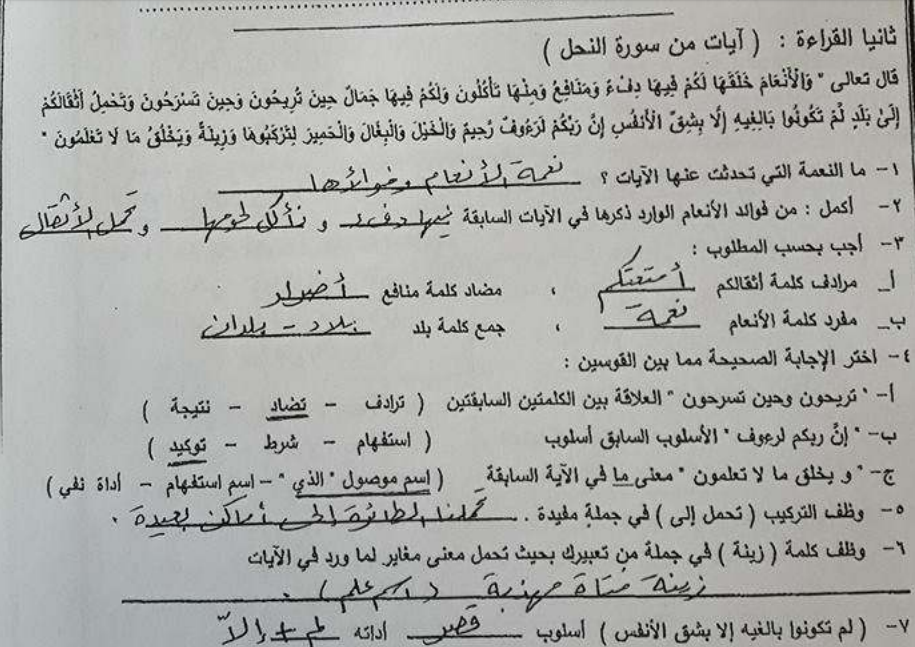 ثانيا القراءة : ( آيات من سورة النحل )
قال تعالى " وَالْأَنْعَامَ خَلَقَهَا لَكُمْ فِيهَا دِفْءٌ وَمَنَافِعُ وَمِنْهَا تَأْكُلُونَ وَلَكُمْ فِيهَا جَمَالٌ حِينَ تُرِيحُونَ وَحِينَ تَسْرَحُونَ وَتَحْمِلُ أَثْقَالَكُمْ
إِلَىٰ بَلَدٍ لَمْ تَكُونُوا بَالِغِيهِ إِلَّا بِشِقِّ الْأَنْفُسِ إِنَّ رَبَّكُمْ لَرَءُوفٌ رَحِيمٌ وَالْخَيْلَ وَالْبِغَالَ وَالْحَمِيرَ لِتَرْكَبُوهَا وَزِينَةً وَيَخْلُقُ مَا لَا تَعْلَمُونَ "
١- ما النعمة التي تحدثت عنها الآيات ؟ نعمة الأنعام وفوائدها
٢- أكمل : من فوائد الأنعام الوارد ذكرها في الآيات السابقة فيها دفء و نأكل لحومها و تحمل الأثقال
٣- أجب بحسب المطلوب :
أ_ مرادف كلمة أثقالكم أمتعتكم ، مضاد كلمة منافع أضرار
ب_ مفرد كلمة الأنعام نعمة ، جمع كلمة بلد بلاد - بلدان
٤- اختر الإجابة الصحيحة مما بين القوسين :
أ- " تريحون وحين تسرحون " العلاقة بين الكلمتين السابقتين ( ترادف - تضاد - نتيجة )
ب- " إنَّ ربكم لرءوف " الأسلوب السابق أسلوب ( استفهام - شرط - توكيد )
ج- " و يخلق ما لا تعلمون " معنى ما في الآية السابقة ( اسم موصول " الذي " - اسم استفهام - أداة نفي )
٥- وظف التركيب ( تحمل إلى ) في جملة مفيدة . تحملنا الطائرة إلى أماكن بعيدة .
٦- وظف كلمة ( زينة ) في جملة من تعبيرك بحيث تحمل معنى مغاير لما ورد في الآيات
زينة فتاة مهذبة ( اسم علم ) .
٧- ( لم تكونوا بالغيه إلا بشق الأنفس ) أسلوب قصر أداته لم + إلاّ